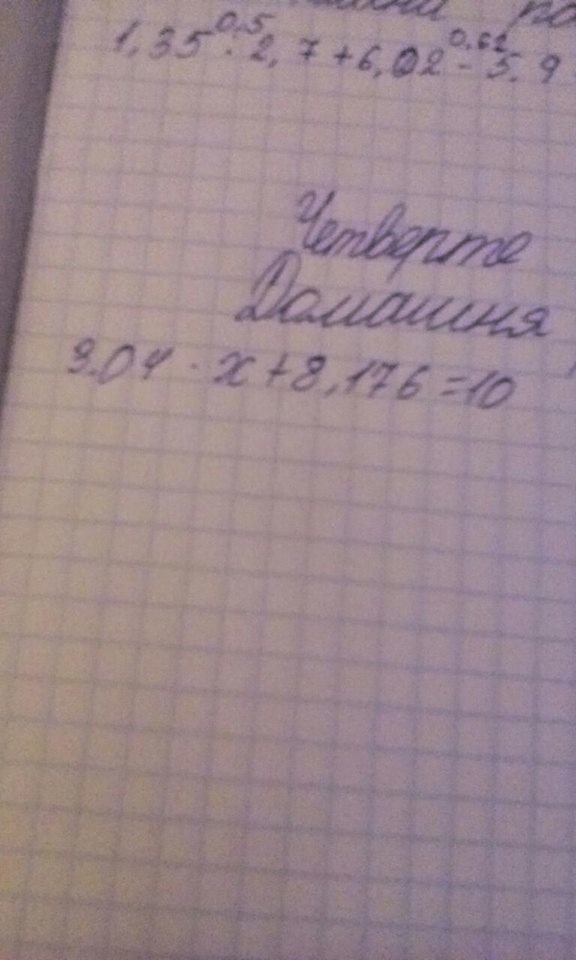 0,5 0,62
1,35 : 2,7 + 6,02 - 5,9
Четверте
Домашня
9.04 · x + 8,176 = 10